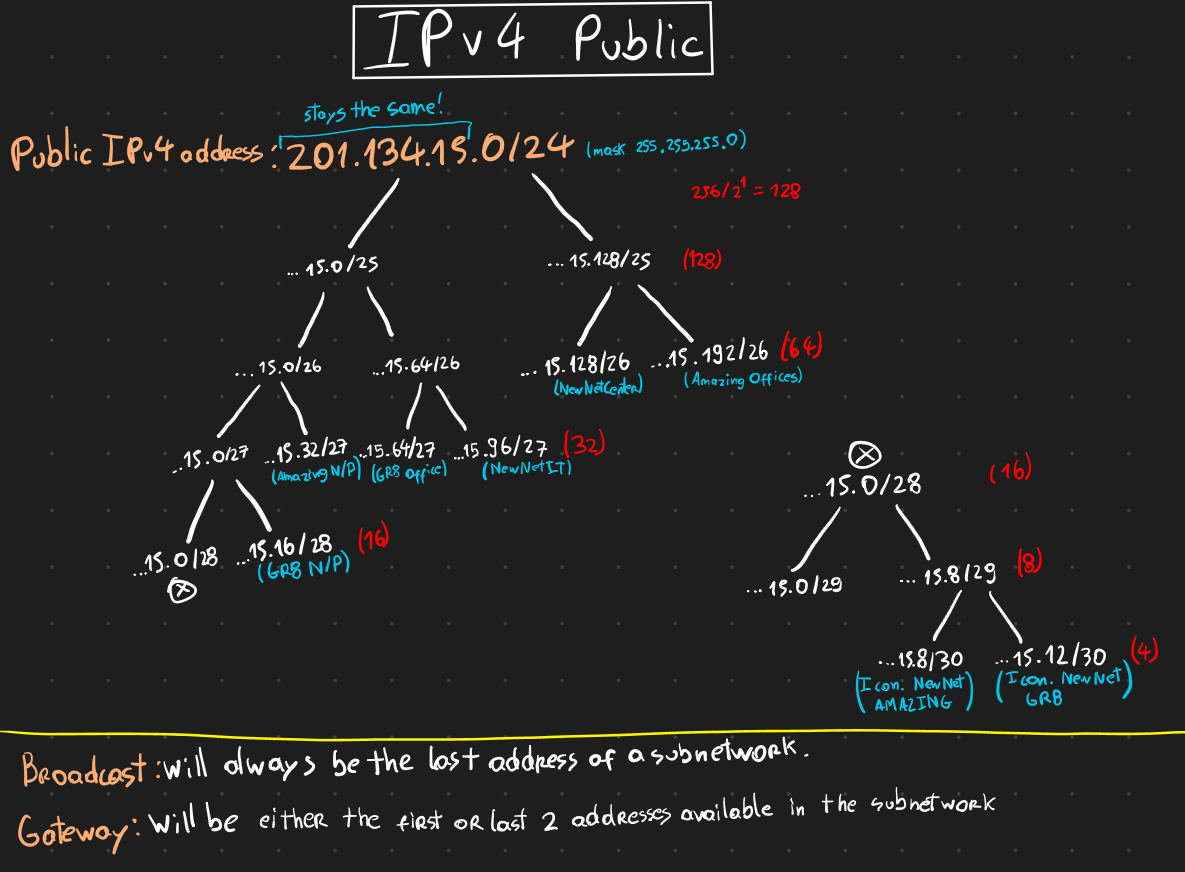 IPv4 Public
stays the same!
Public IPv4 address: 201.134.15.0/24 (mask 255.255.255.0)
256/2¹ = 128
... 15.0/25
... 15.128/25 (128)
... 15.0/26
...15.64/26
... 15.128/26
...15.192/26 (64)
(NewNetCenter)
(Amazing Offices)
...15.0/27
...15.32/27
...15.64/27
...15.96/27 (32)
(Amazing N/P)
(GR8 Office)
(NewNetIT)
...15.0/28
...15.16/28 (16)
(GR8 N/P)
...15.0/28 (16)
... 15.0/29
... 15.8/29 (8)
...15.8/30
...15.12/30 (4)
(I con. NewNet AMAZING)
(I con. NewNet GR8)
Broadcast: will always be the last address of a subnetwork.
Gateway: Will be either the first OR last 2 addresses available in the subnetwork